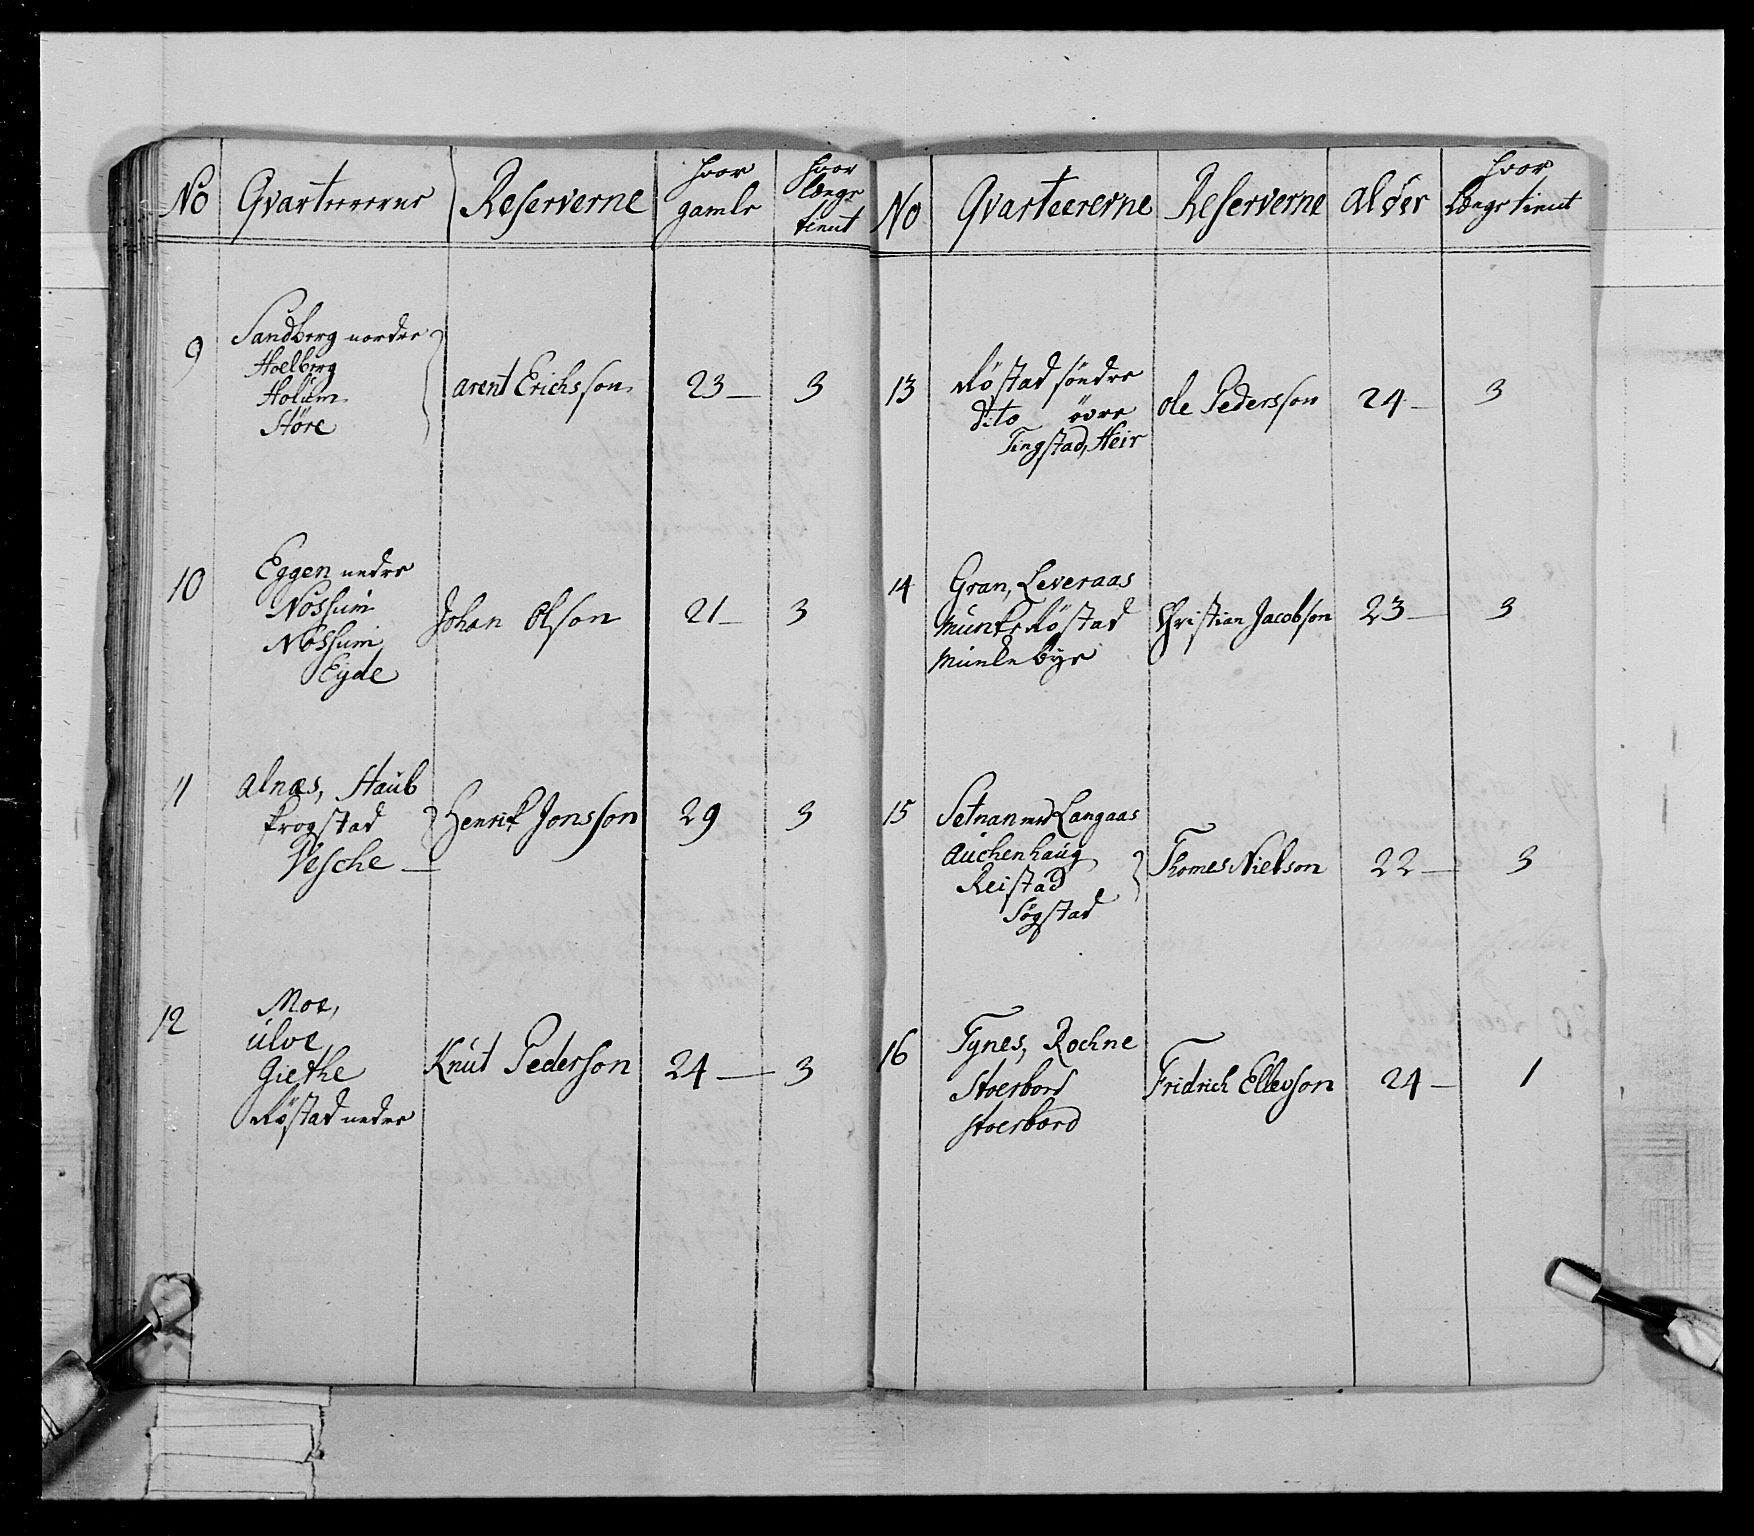 No Qvarteererne Reserverne hvor gamle hvor længe tient
9 Sandberg nordre
Hoelberg
Holum
Støre
Arent Erichsson 23 — 3
10 Eggen nedre
Nossum
Nossum
Eyde
Johan Olson 21 — 3
11 Alnæs, Staub
Frogstad
Vesche —
Henrik Jonsson 29 3
12 Moe,
Ulve
Giethe
Røstad nedre
Knut Pederson 24 — 3
No Qvarteererne Reserverne Alder hvor længe tient
13 Røstad söndre
dito övre
Tingstad, Heir
Ole Pedersson 24 — 3
14 Gran, Leveraas
Munk Røstad
Munkebye
Christian Jacobson 23 — 3
15 Setnan med Langaas
Auchenhaug
Reistad
Søgstad
Thomes Nielson 22 — 3
16 Tynes, Rochne
Stoerbord
Stoerbord
Fridrich Ellevson 24 — 1